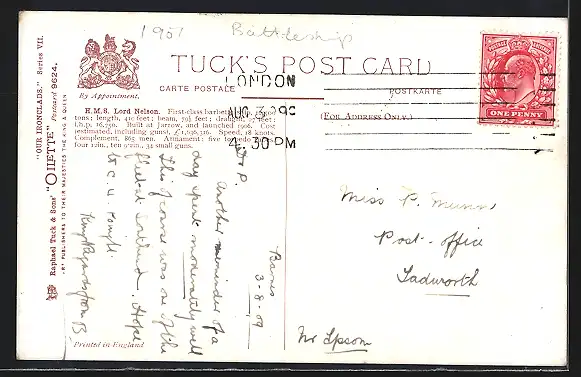 1951 Battleship
TUCK'S POST CARD
CARTE POSTALE
POSTKARTE
By Appointment.
(FOR ADDRESS ONLY.)
LONDON
AUG 3 09
4.30 PM
POSTAGE REVENUE
ONE PENNY
"OUR IRONCLADS." Series VII.
"OILETTE" Postcard 9624.
Raphael Tuck & Sons'
ART PUBLISHERS TO THEIR MAJESTIES THE KING & QUEEN
H.M.S. Lord Nelson. First-class barbette ship,
tons; length, 410 feet; beam, 79½ feet; draught, 27 feet;
i.h.p. 16,750. Built at Jarrow, and launched 1906. Cost
(estimated, including guns), £1,
Speed, 18 knots.
Complement, 865 men. Armament: five torpedo
four 12in., ten 9·2in., 34 small guns.
Barnes
3-8-09
P.
Another reminder of a
day spent moderately well
This of course was one of the
fleet at Southend. Hope
to C. U. tonight
Kind Regards from B
Printed in England
Miss P. Munn
Post-office
Tadworth
Nr Epsom